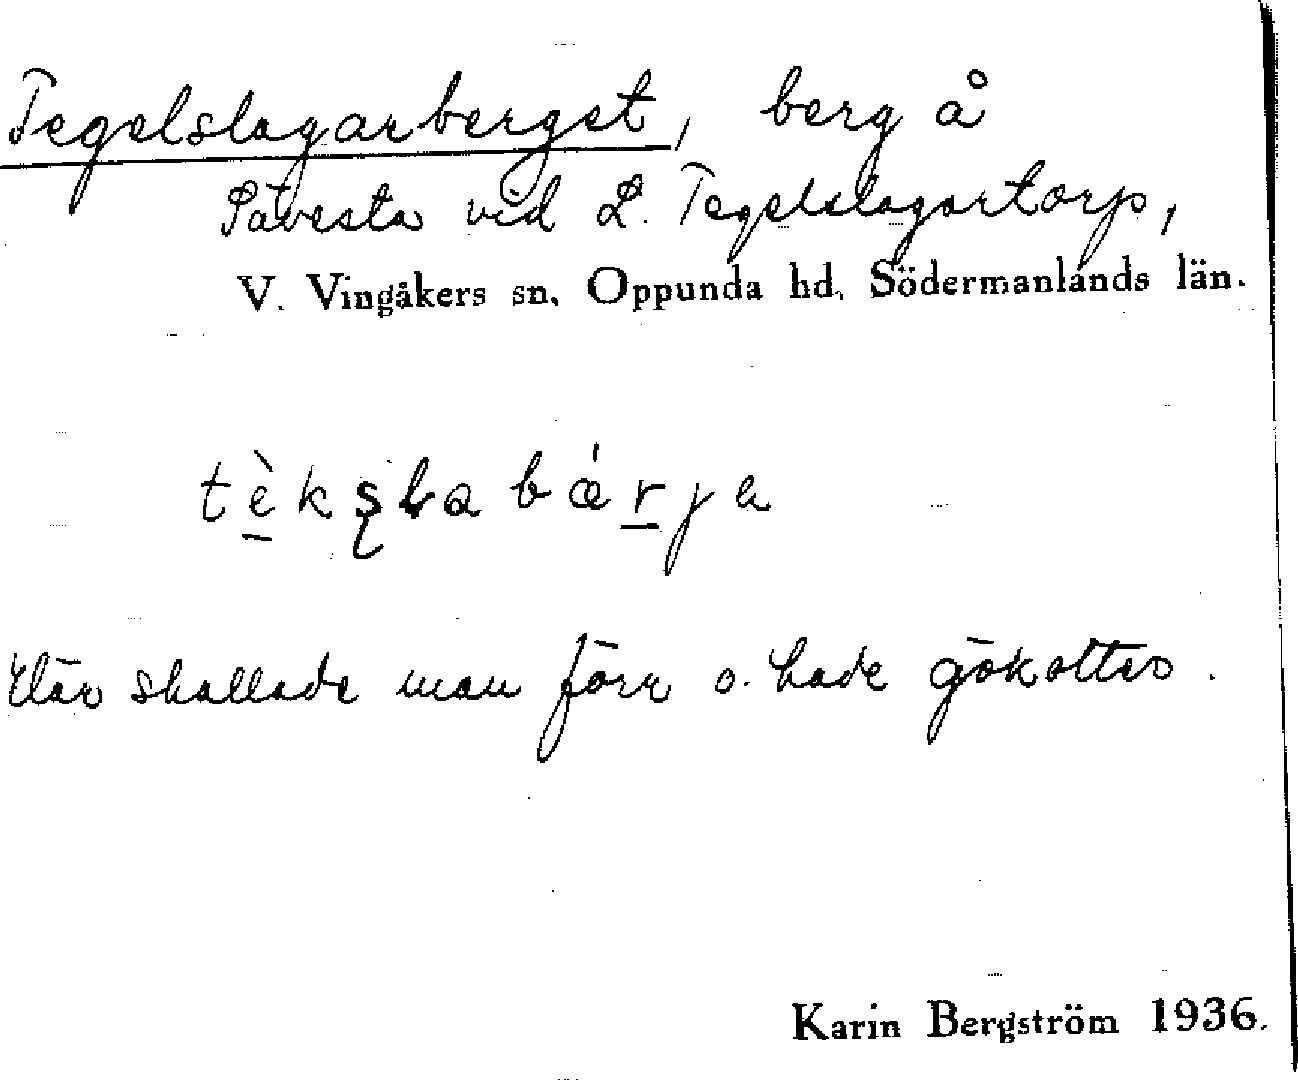 Tegelslagarberget, berg å
Påvesta vid L. Tegelslagartorp,
V. Vingåkers sn, Oppunda hd, Södermanlands län.
Där skallade man förr o. hade gökottor.
Karin Bergström 1936.